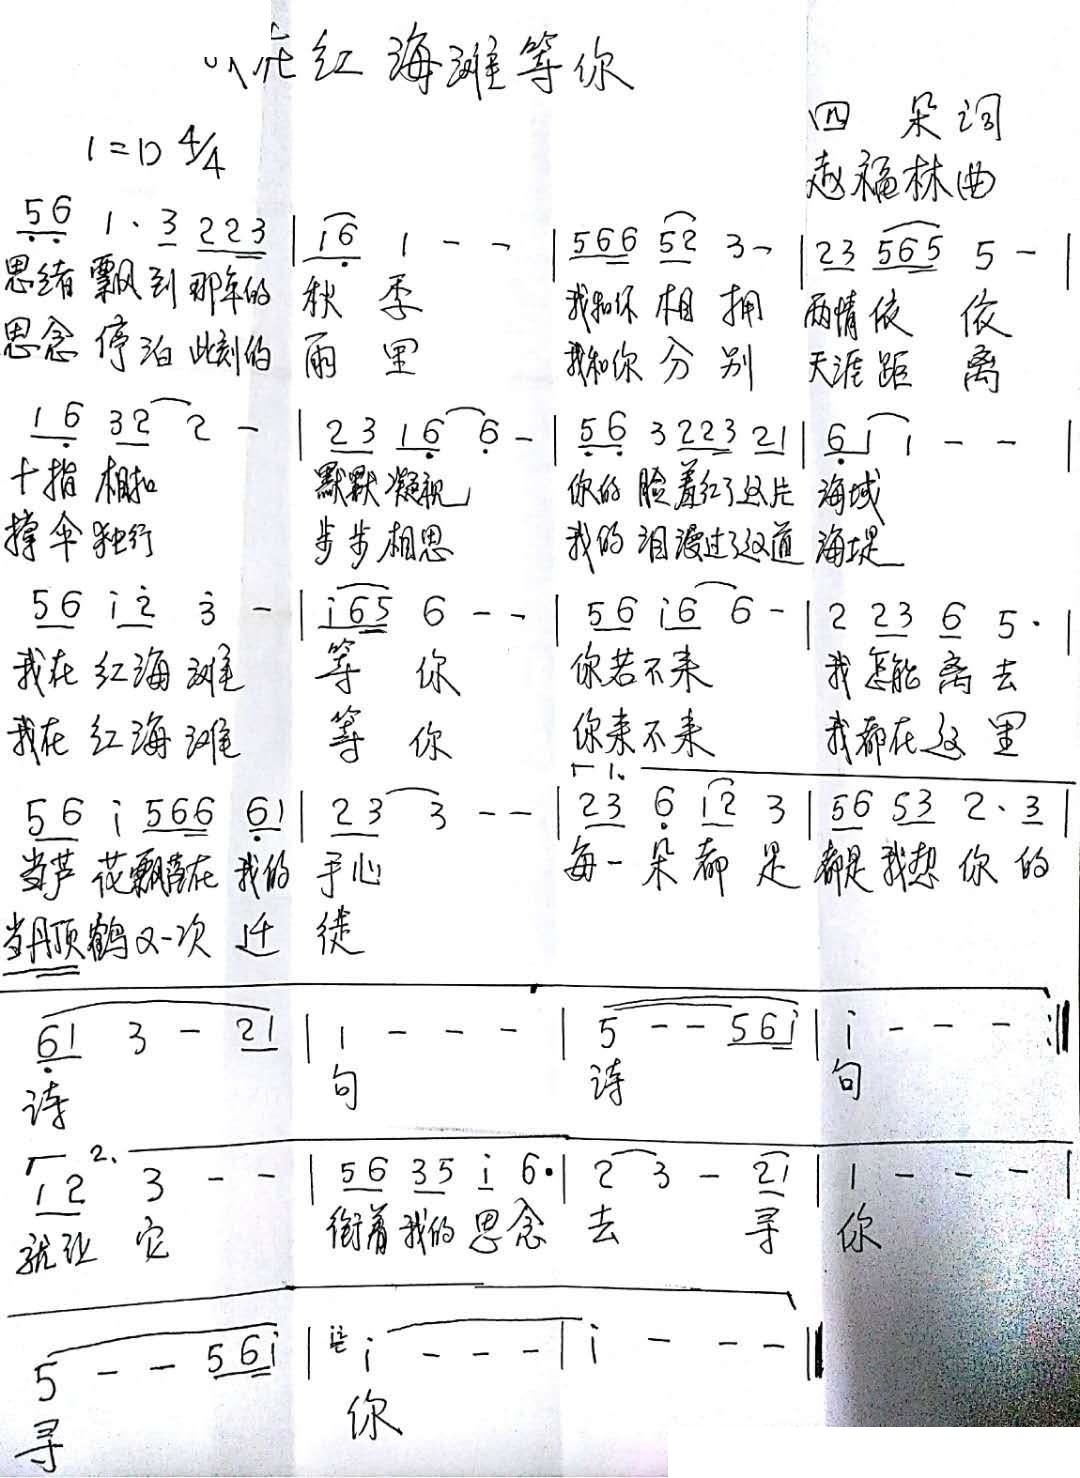 在红海滩等你
四朵词
1=D 4/4
赵福林曲
56 1·3 223 | i6 1 - - | 566 52 3- | 23 565 5 - |
思绪飘到那年的 秋季 我和你相拥 两情依依
思念停泊此刻的 雨里 我和你分别 天涯距离
16 32 2 - | 23 16 6 - | 56 3223 21 | 61 1 - - |
十指相扣 默默凝视 你的脸羞红了这片 海域
撑伞独行 步步相思 我的泪漫过了这道 海堤
56 i2 3 - | i65 6 - - | 56 i6 6 - | 2 23 6 5· |
我在红海滩 等你 你若不来 我怎能离去
我在红海滩 等你 你来不来 我都在这里
1.
56 i 566 61 | 23 3 - - | 23 6 i2 3 | 56 53 2·3 |
当芦花飘落在我的 手心 每一朵都是 都是我想你的
当丹顶鹤又一次迁 徙
61 3 - 21 | 1 - - - | 5 - - 56i | i - - - :||
诗 句 诗 句
2.
12 3 - - | 56 35 i 6· | 2 3 - 21 | 1 - - - |
就让它 衔着我的思念 去寻 你
5 - - 56i | i - - - | i - - - ||
寻 你